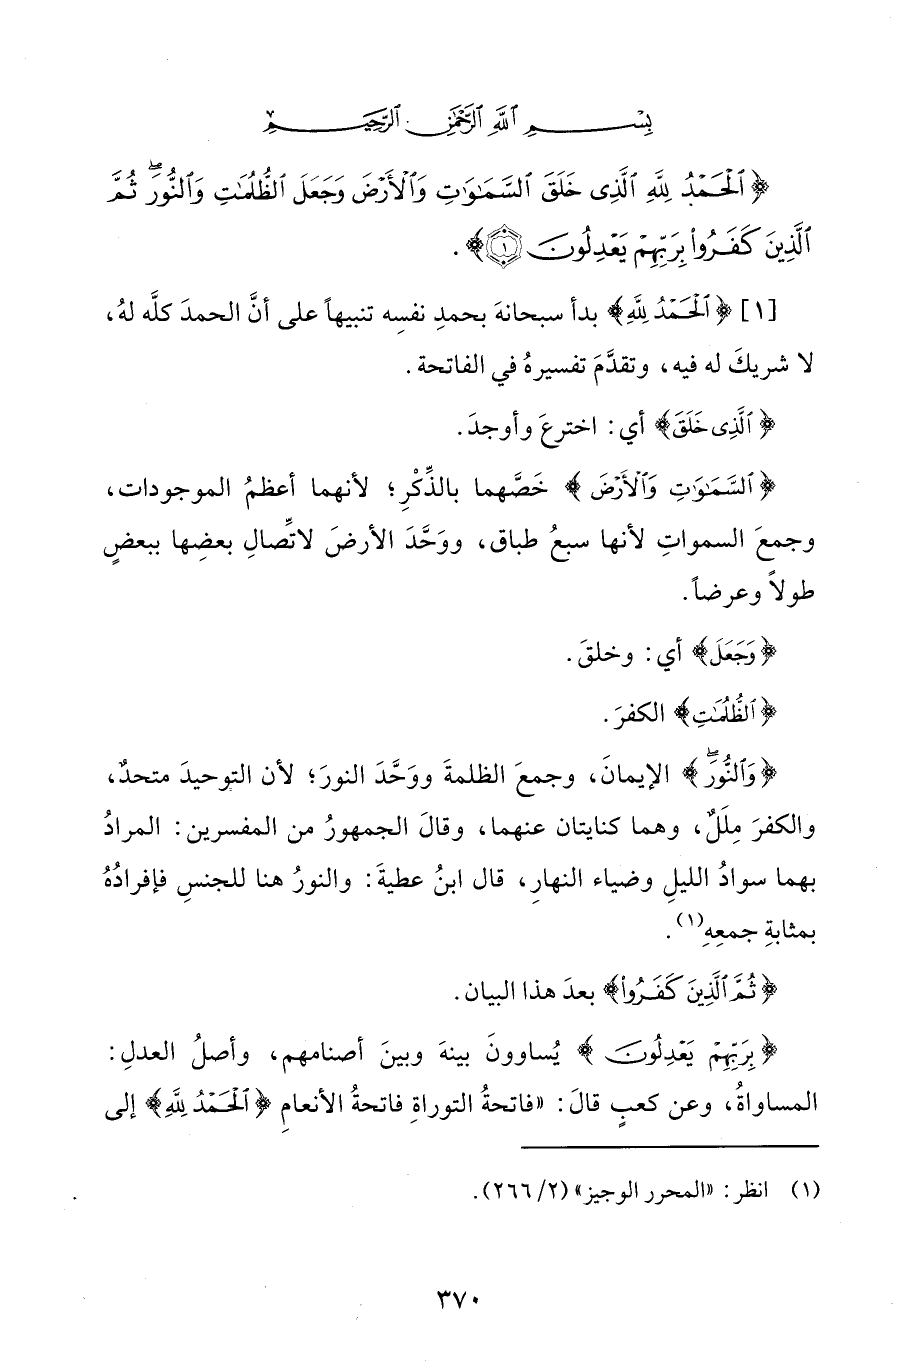 بِسْمِ ٱللَّهِ ٱلرَّحْمَٰنِ ٱلرَّحِيمِ
﴿ ٱلْحَمْدُ لِلَّهِ ٱلَّذِى خَلَقَ ٱلسَّمَٰوَٰتِ وَٱلْأَرْضَ وَجَعَلَ ٱلظُّلُمَٰتِ وَٱلنُّورَ ۖ ثُمَّ
ٱلَّذِينَ كَفَرُوا۟ بِرَبِّهِمْ يَعْدِلُونَ ۝١ ﴾ .
[١] ﴿ٱلْحَمْدُ لِلَّهِ﴾ بدأ سبحانهَ بحمدِ نفسِه تنبيهاً على أنَّ الحمدَ كلَّه لهُ،
لا شريكَ له فيه، وتقدَّمَ تفسيرهُ في الفاتحة .
﴿ ٱلَّذِى خَلَقَ﴾ أي: اخترعَ وأوجدَ.
﴿ ٱلسَّمَٰوَٰتِ وَٱلْأَرْضَ ﴾ خَصَّهما بالذِّكْرِ؛ لأنهما أعظمُ الموجودات،
وجمعَ السمواتِ لأنها سبعُ طباق، ووَحَّدَ الأرضَ لاتِّصالِ بعضِها ببعضٍ
طولاً وعرضاً.
﴿وَجَعَلَ﴾ أي: وخلقَ.
﴿ ٱلظُّلُمَٰتِ﴾ الكفرَ.
﴿وَٱلنُّورَ ۖ﴾ الإيمانَ، وجمعَ الظلمةَ ووَحَّدَ النورَ؛ لأن التوحيدَ متحدٌ،
والكفرَ مِلَلٌ، وهما كنايتان عنهما، وقالَ الجمهورُ من المفسرين: المرادُ
بهما سوادُ الليلِ وضياء النهارِ، قال ابنُ عطيةَ: والنورُ هنا للجنسِ فإفرادُهُ
بمثابةِ جمعِهِ(١).
﴿ثُمَّ ٱلَّذِينَ كَفَرُوا۟﴾ بعدَ هذا البيان.
﴿بِرَبِّهِمْ يَعْدِلُونَ ﴾ يُساوونَ بينهَ وبينَ أصنامهم، وأصلُ العدلِ:
المساواةُ، وعن كعبٍ قالَ: «فاتحةُ التوراةِ فاتحةُ الأنعامِ ﴿ٱلْحَمْدُ لِلَّهِ﴾ إلى
(١) انظر: «المحرر الوجيز» (٢/ ٢٦٦).
٣٧٠